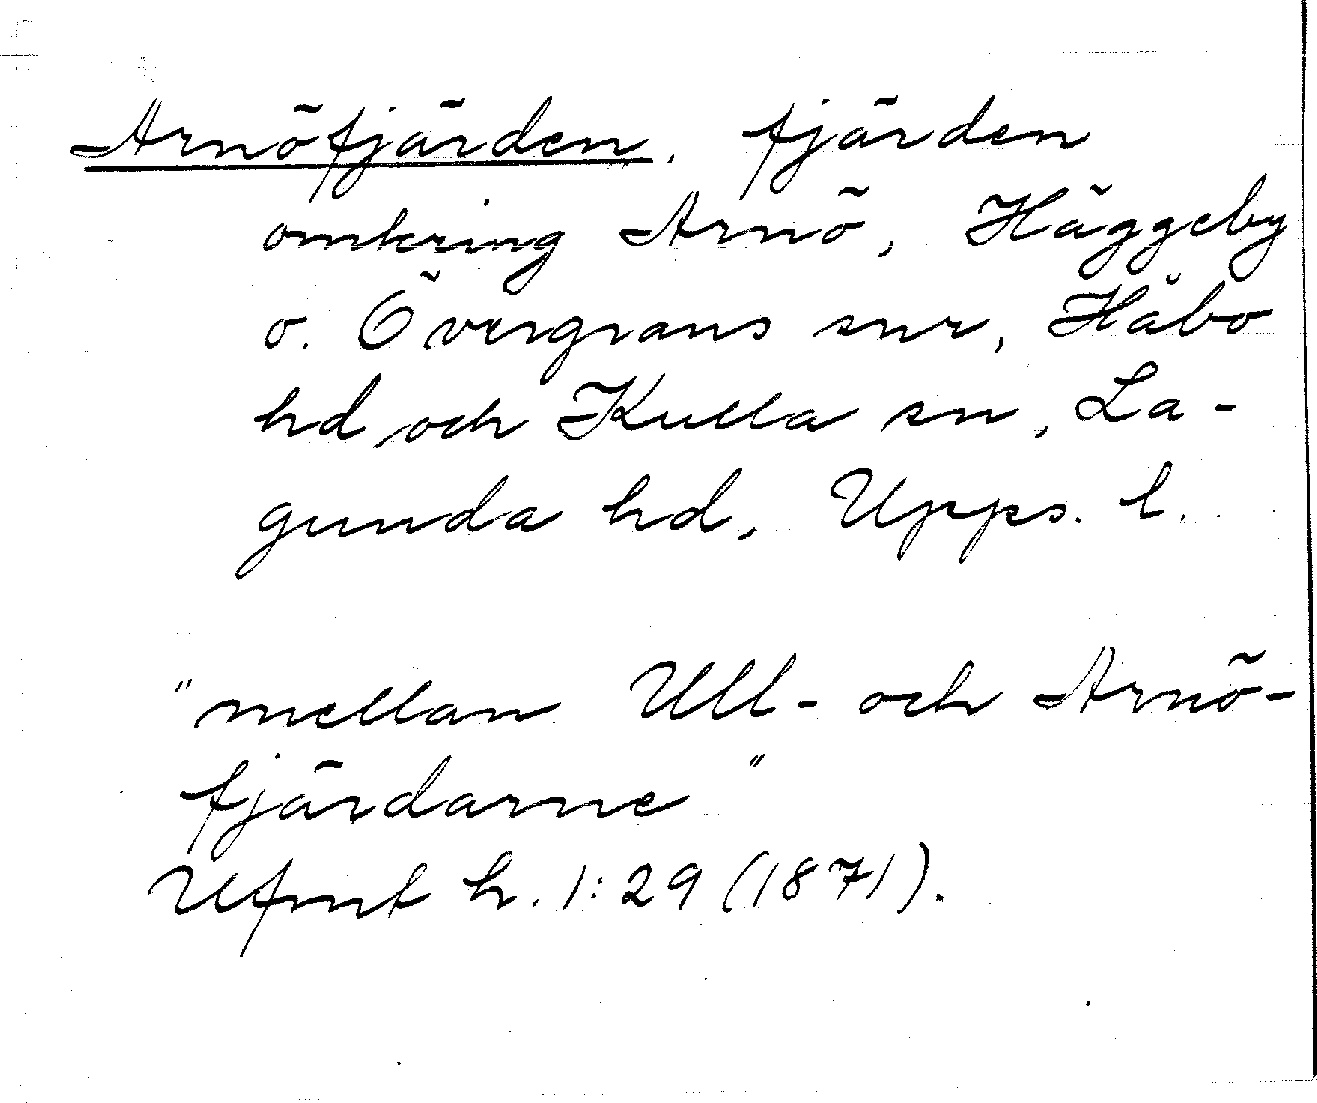 Arnöfjärden, fjärden
omkring Arnö, Häggeby
o. Övergrans snr, Håbo
hd och Kulla sn, La-
gunda hd, Upps. l.
"mellan Ull- och Arnö-
fjärdarne"
Ufmt h. 1:29 (1871).